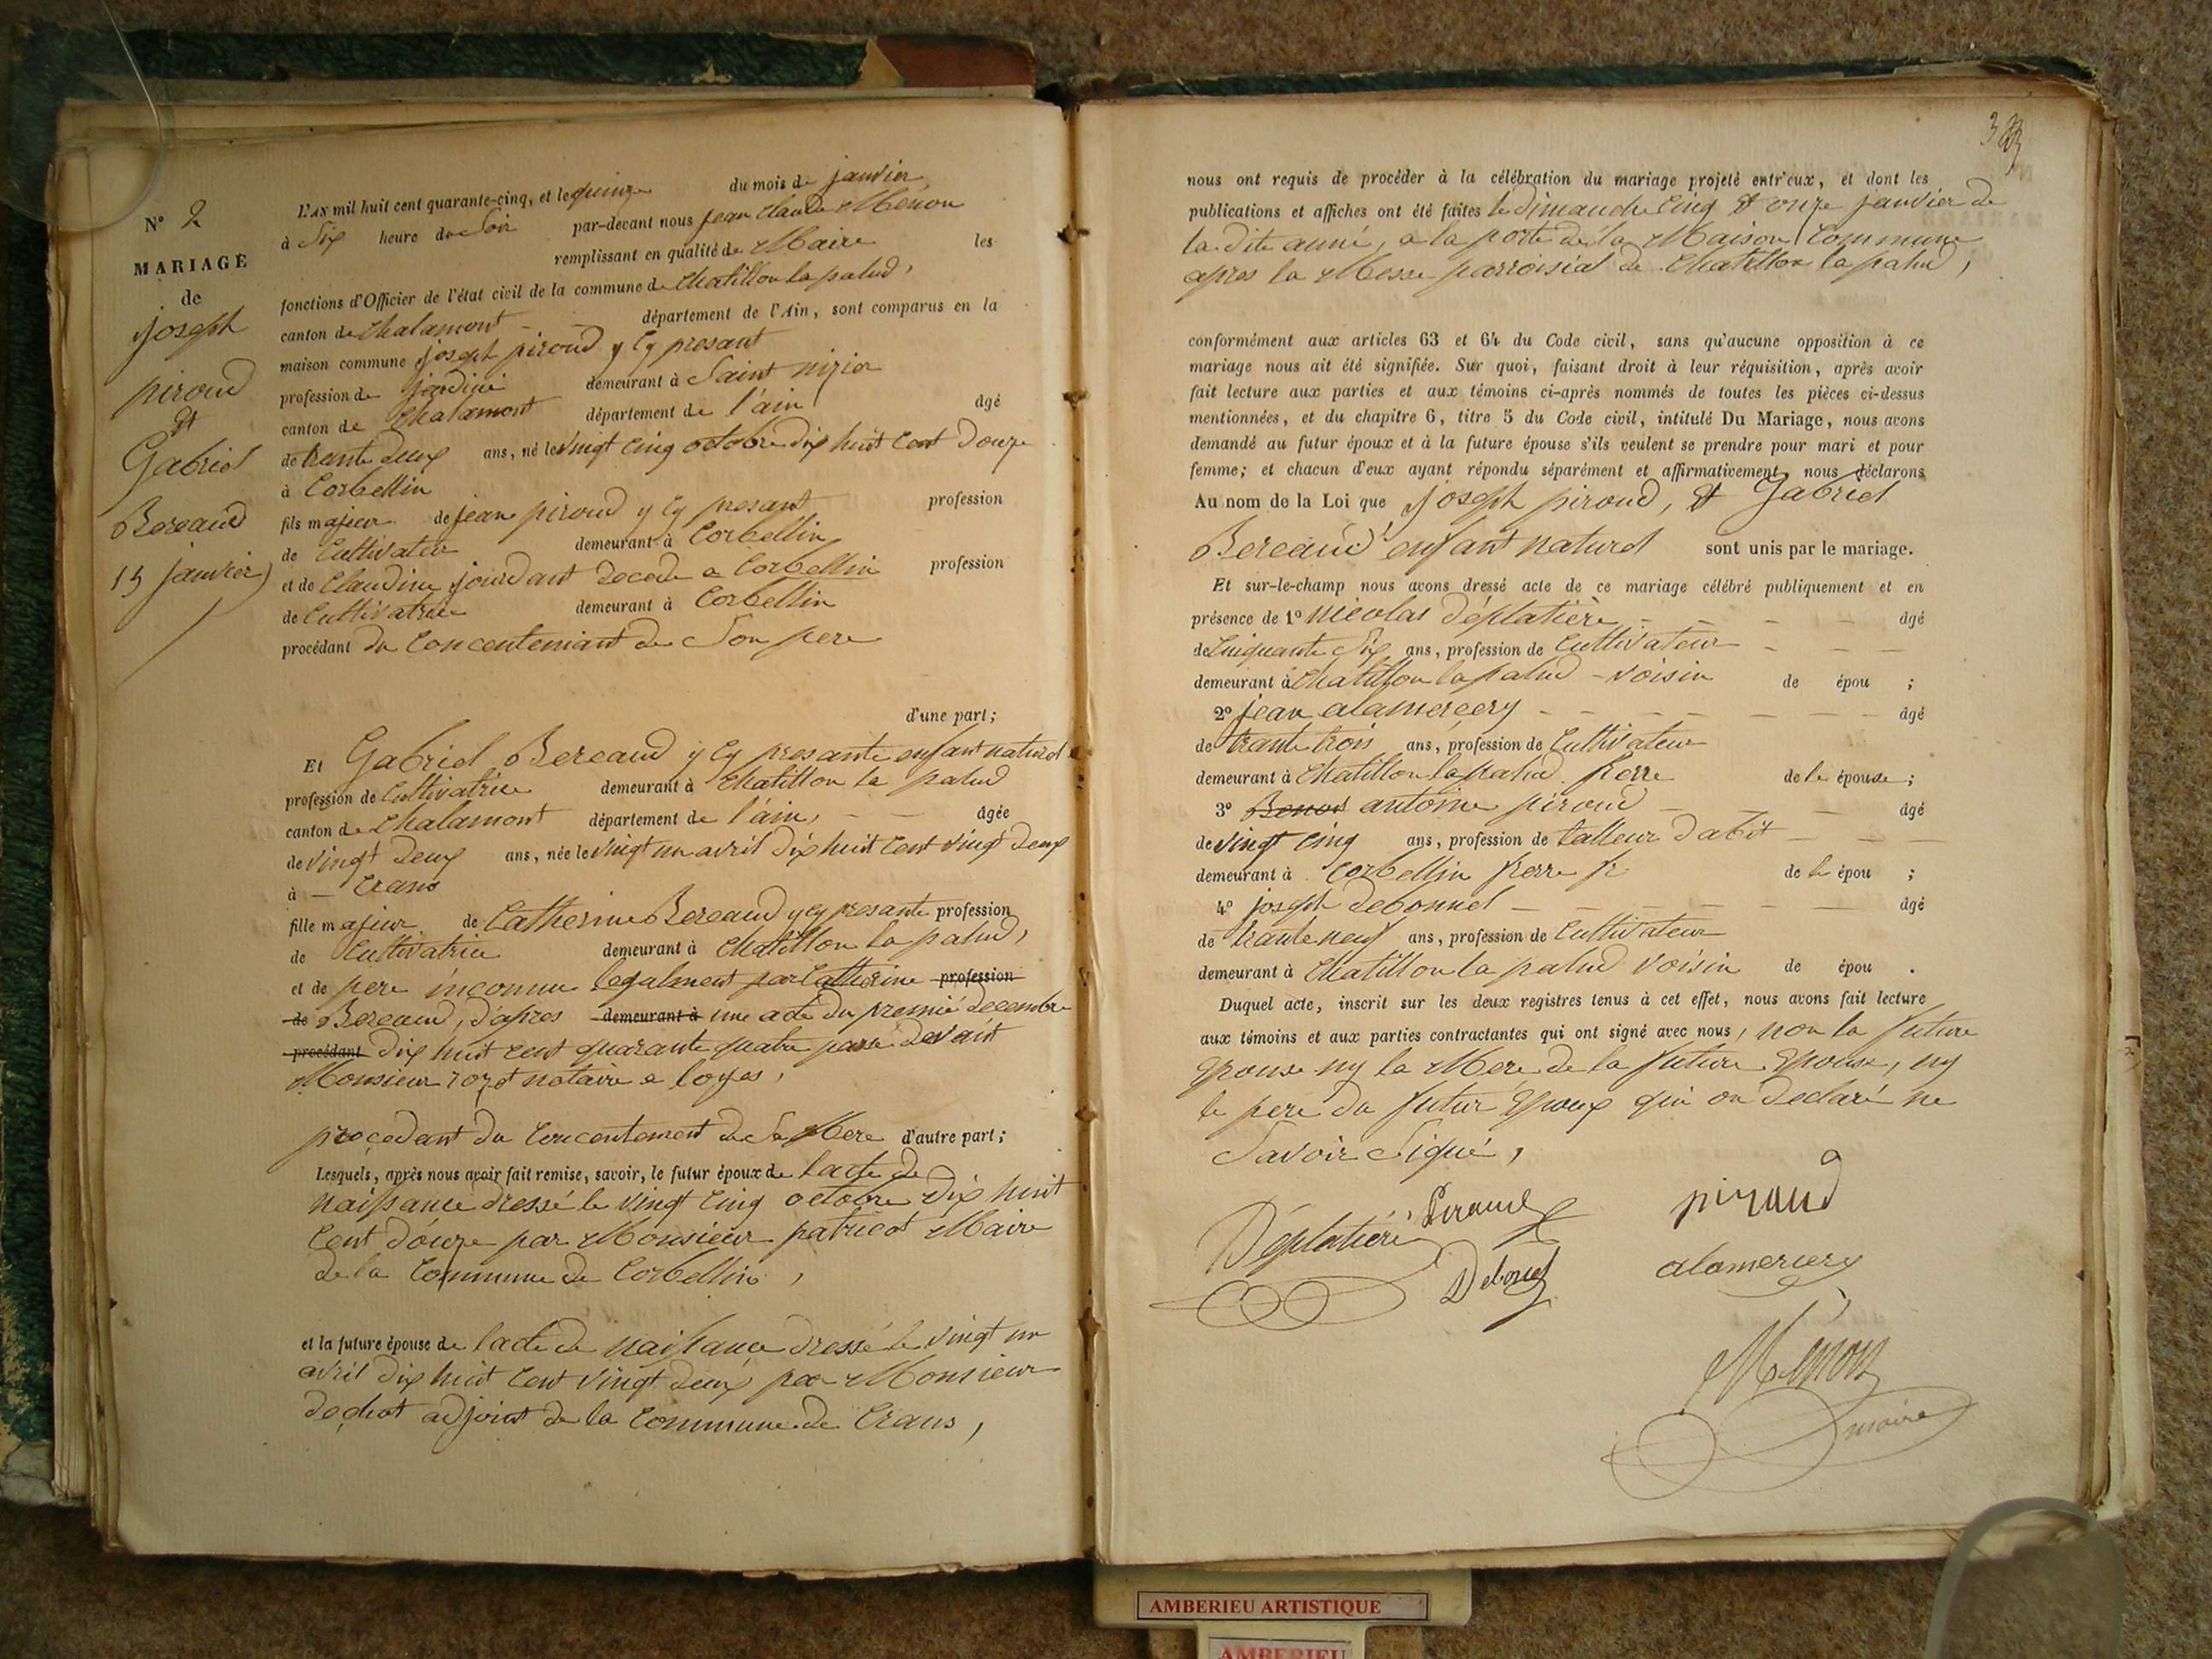 N° 2
MARIAGE
de
joseph
piroud
et
Gabriel
Bereaud
15 janvier
L'AN mil huit cent quarante-cinq, et le quinze du mois de janvier
à Six heure du Soir par-devant nous jean Claude Menon
remplissant en qualité de Maire les
fonctions d'Officier de l'état civil de la commune de Chatillon la palud,
canton de Chalamont département de l'Ain, sont comparus en la
maison commune joseph piroud y Cy presant
profession de jardinié demeurant à Saint nizier
canton de Chalamont département de l'ain âgé
de trente deux ans, né le vingt cinq octobre dix huit Cent douze
à Corbellin
fils majeur de jean piroud y Cy presant profession
de Cultivateur demeurant à Corbellin
et de Claudine jourdant decede a Corbellin profession
de Cultivatrice demeurant à Corbellin
procédant du Concentemant de Son pere
d'une part;
Et Gabriel Bereaud y Cy presante enfant naturel
profession de Cultivatrice demeurant à Chatillon la palud
canton de Chalamont département de l'ain, âgée
de vingt deux ans, née le vingt un avril dix huit Cent vingt deux
à - Crans
fille majeur de Catherine Bereaud y cy presante profession
de Cultivatrice demeurant à Chatillon la palud,
et de pere inconnu legalment par Catherine profession
de Bereaud, d'apres demeurant à une acte du premié decembre
procédant dix huit cent quarante quatre passé devant
Monsieur notaire a loyes,
procedant du Concentement de Sa Mere d'autre part;
Lesquels, après nous avoir fait remise, savoir, le futur époux de l'acte de
naissance dressé le vingt Cinq octobre dix huit
Cent douze par Monsieur patricot Maire
de la Commune de Corbellin,
et la future épouse de l'acte de naissance dressé le vingt un
avril dix huit Cent vingt deux par Monsieur
adjoint de la Commune de Crans,
nous ont requis de procéder à la célébration du mariage projeté entr'eux, et dont les
publications et affiches ont été faites le dimanche Cinq et onze janvier de
la dite anné, a la porte de la Maison Commune
apres la Messe parroisial de Chatillon la palud,
conformément aux articles 63 et 64 du Code civil, sans qu'aucune opposition à ce
mariage nous ait été signifiée. Sur quoi, faisant droit à leur réquisition, après avoir
fait lecture aux parties et aux témoins ci-après nommés de toutes les pièces ci-dessus
mentionnées, et du chapitre 6, titre 5 du Code civil, intitulé Du Mariage, nous avons
demandé au futur époux et à la future épouse s'ils veulent se prendre pour mari et pour
femme; et chacun d'eux ayant répondu séparément et affirmativement, nous déclarons
Au nom de la Loi que joseph piroud, et Gabriel
Bereaud enfant naturel sont unis par le mariage.
Et sur-le-champ nous avons dressé acte de ce mariage célébré publiquement et en
présence de 1° nicolas déplatière âgé
de Cinquante Six ans, profession de Cultivateur
demeurant à Chatillon la palud - voisin de épou ;
2° jean alamercery âgé
de trante trois ans, profession de Cultivateur
demeurant à Chatillon la palud frere de le épouse ;
3° Benoit antoine piroud âgé
de vingt cinq ans, profession de talleur d'abit
demeurant à Corbellin frere de le épou ;
4° joseph debonnel âgé
de trante neuf ans, profession de Cultivateur
demeurant à Chatillon la palud voisin de épou .
Duquel acte, inscrit sur les deux registres tenus à cet effet, nous avons fait lecture
aux témoins et aux parties contractantes qui ont signé avec nous, non la future
Epouse ny la Mere de la future Epouse, ny
le pere du futur Epoux qui on declaré ne
Savoir Signé,
Déplatière piroud
Debonel alamercery
Menon
maire
AMBERIEU ARTISTIQUE
AMBERIEU